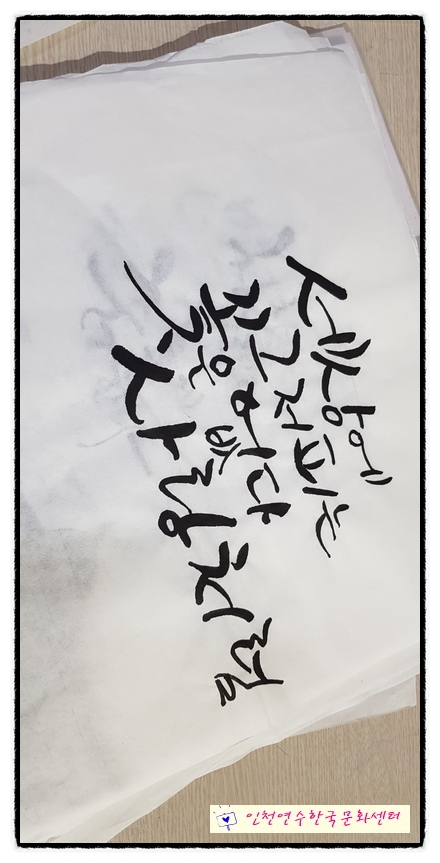 세상에
그저 피는
꽃은 없다
사랑처럼
인천연수한국문화센터